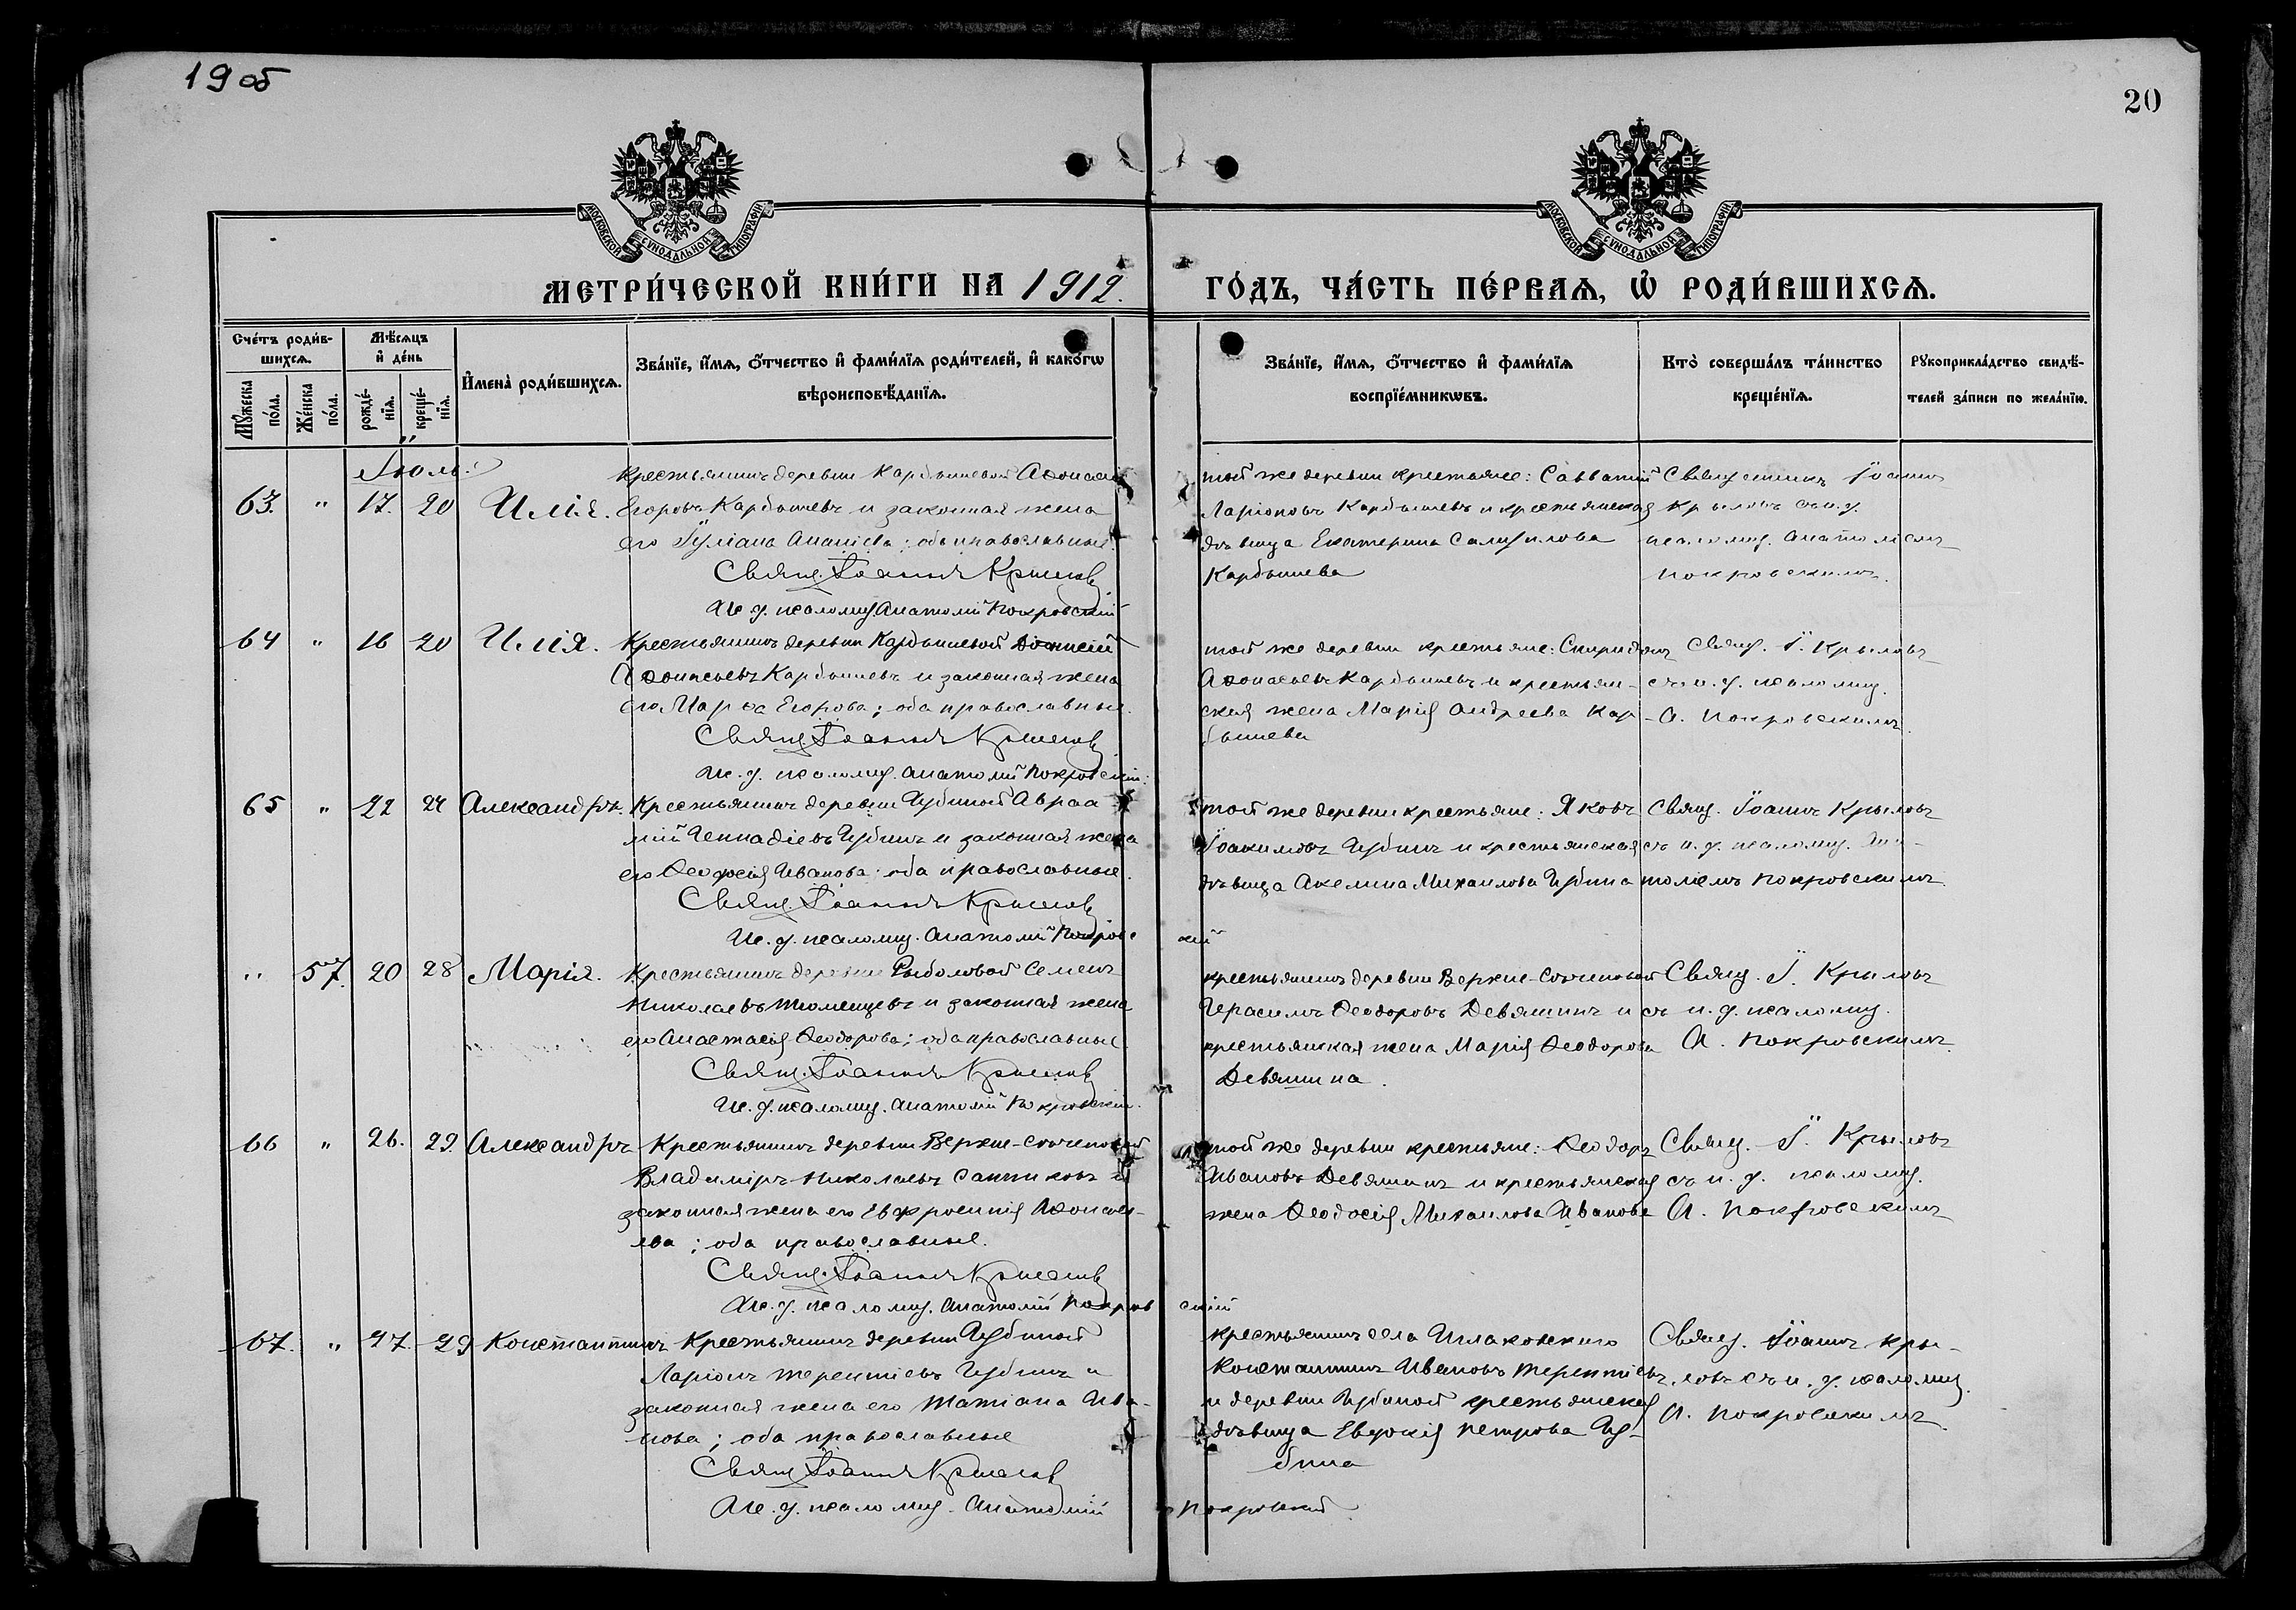 19об
20
МОСКОВСКОЙ СѴНОДАЛЬНОЙ ТИПОГРАФІИ
МОСКОВСКОЙ СѴНОДАЛЬНОЙ ТИПОГРАФІИ
МЕТРИ́ЧЕСКОЙ КНИ́ГИ НА 1912.
ГО́ДЪ, ЧА́СТЬ ПЕ́РВАЯ, Ѡ РОДИ́ВШИХСЯ.
Сче́тъ роди́в-
шихся.
Мꙋ́жеска по́ла.
Же́нска по́ла.
Мѣ́сяцъ и҆ де́нь
рожде́-
нїя.
креще́-
нїя.
И҆мена̀ роди́вшихся.
Зва́нїе, и҆́мя, ѻ҆́тчество и҆ фами́лїя роди́телей, и҆ како́гѡ
вѣроисповѣ́данїя.
Зва́нїе, и҆́мя, ѻ҆́тчество и҆ фами́лїя
воспрїе́мникѡвъ.
Кто̀ соверша́лъ та́инство
креще́нїя.
Рꙋкоприкла́дство свидѣ́-
телей за́писи по жела́нїю.
Іюль.
63. " 17. 20 Илія.
Крестьянинъ деревни Карбышевой Аѳонасій
Егоровъ Карбышевъ и законная жена
его Іуліана Ананіева; оба православные.
Свящ. Іоаннъ Крылов
Ис. д. псаломщ. Анатолій Покровскій
той же деревни крестьяне: Савватій
Ларіоновъ Карбышевъ и крестьянская
дѣвица Екатерина Самуилова
Карбышева
Священникъ Іоаннъ
Крыловъ съ и. д.
псаломщ. Анатоліемъ
Покровскимъ.
64 " 16 20 Илія.
Крестьянинъ деревни Карбышевой Діонисій
Аѳонасьевъ Карбышевъ и законная жена
его Марѳа Егорова; оба православные.
Свящ. Іоаннъ Крылов
Ис. д. псаломщ. Анатолій Покровскій.
той же деревни крестьяне: Спиридонъ
Аѳонасьевъ Карбышевъ и крестьян-
ская жена Марія Андреева Кар-
бышева
Свящ. І. Крыловъ
съ и. д. псаломщ.
А. Покровскимъ.
65 " 22 24 Александръ.
Крестьянинъ деревни Губиной Авраа
мій Геннадіевъ Губинъ и законная жена
его Ѳеодосія Иванова; оба православные.
Свящ. Іоаннъ Крылов
Ис. д. псаломщ. Анатолій Покровскій
той же деревни крестьяне: Яковъ
Іоакимовъ Губинъ и крестьянская
дѣвица Акелина Михаилова Губина
Свящ. Іоаннъ Крыловъ
съ и. д. псаломщ. Ана-
толіемъ Покровскимъ
" 57. 20 28 Марія.
Крестьянинъ деревни Рыболовой Семенъ
Николаевъ Тюменцевъ и законная жена
его Анастасія Ѳеодорова; оба православные
Свящ. Іоаннъ Крылов
Ис. д. псаломщ. Анатолій Покровскій.
крестьянинъ деревни Верхне-
Герасимъ Ѳеодоровъ Девяшинъ и
крестьянская жена Марія Ѳеодорова
Девяшина.
Свящ. І. Крыловъ
съ и. д. псаломщ.
А. Покровскимъ.
66 " 26. 29. Александръ
Крестьянинъ деревни Верхне-
Владиміръ Николаевъ Санниковъ и
законная жена его Евфросинія Аѳонась-
ева; оба православные.
Свящ. Іоаннъ Крылов
Ис. д. псаломщ. Анатолій Покровскій
той же деревни крестьяне: Ѳеодоръ
Ивановъ Девяшинъ и крестьянская
жена Ѳеодосія Михаилова Иванова
Свящ. І. Крыловъ
съ и. д. псаломщ.
А. Покровскимъ
67. " 27. 29 Константинъ
Крестьянинъ деревни Губиной
Ларіонъ Терентіевъ Губинъ и
законная жена его Татіана Ива-
нова; оба православные
Свящ. Іоаннъ Крылов
Ис. д. псаломщ. Анатолій Покровскій
крестьянинъ села
Константинъ Ивановъ Терентіевъ
и деревни Губиной крестьянская
дѣвица Евдокія Петрова Гу-
бина
Свящ. Іоаннъ Кры-
ловъ съ и. д. псаломщ.
А. Покровскимъ